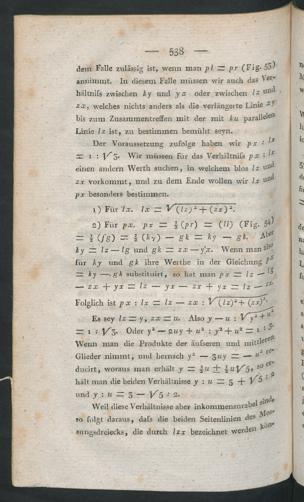 — 538 —
dem Falle zulässig ist, wenn man pl = pr (Fig. 53)
annimmt. In diesem Falle müssen wir auch das Ver-
hältniſs zwischen ky und yx oder zwischen lz und
zx, welches nichts anders als die verlängerte Linie xy
bis zum Zusammentreffen mit der mit ku parallelen
Linie lz ist, zu bestimmen bemüht seyn.
Der Voraussetzung zufolge haben wir px : lx
= 1 : √3. Wir müssen für das Verhältniſs px : lx
einen andern Werth suchen, in welchem blos lz und
zx vorkommt, und zu dem Ende wollen wir lx und
px besonders bestimmen.
1) Für lx. lx = √(lz)² + (zx)².
2) Für px. px = ½ (pr) = (li) (Fig. 54)
= ½ (fg) = ½ (ky) — gk = ky — gk. Aber
ky = lz — lg und gk = zx — yx. Wenn man also
für ky und gk ihre Werthe in der Gleichung px
= ky — gk substituirt, so hat man px = lz — lg
— zx + yx = lz — yx — zx + yx = lz — zx.
Folglich ist px : lx = lz — zx : √(lz)² + (zx)².
Es sey lx = y, zx = u. Also y — u : √y² + u²
= 1 : √3. Oder y² — 2uy + u² : y² + u² = 1 : 3.
Wenn man die Produkte der äuſseren und mittleren
Glieder nimmt, und hernach y² — 3uy = — u² re-
ducirt, woraus man erhält y = ³⁄₂u ± ½u√5, so er-
hält man die beiden Verhältnisse y : u = 3 + √5 : 2
und y : u = 3 — √5 : 2.
Weil diese Verhältnisse aber inkommensurabel sind,
so folgt daraus, daſs die beiden Seitenlinien des Mes-
sungsdreiecks, die durch lzx bezeichnet werden kön-